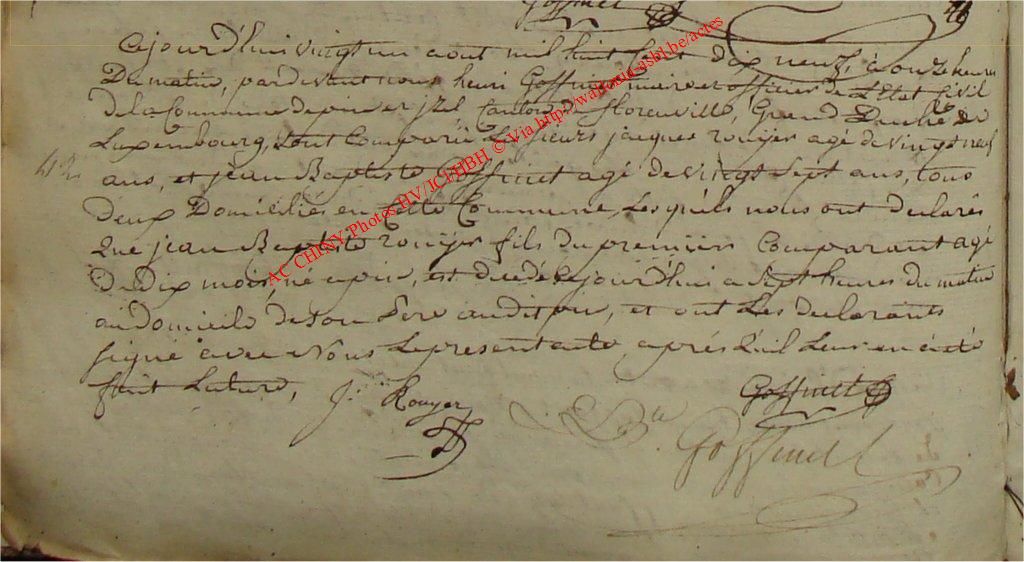 Goffinet
Cejourd'hui vingt un aout mil huit Cent dix neuf, à onze heures
Du matin, pardevant nous henri Goffinet maire et officier de L'Etat Civil
de la Commune de pin et izel Canton de florenville, Grand Duché de
Luxembourg, sont Comparu Les sieurs jacques rouyer agé de vingt neuf
42 ans, et jean Baptiste Goffinet agé de vingt sept ans, tous
deux Domiciliés en Cette Commune, Lesquels nous ont declarés
que jean Baptiste rouyer fils du premier Comparant agé
de Dix mois, né a pin, est decedé Cejourd'hui a sept heures du matin
au domicile de son Pere audit pin, et ont Les declarants
signé avec Nous Le present acte, aprés qu'il Leur en a eté
fait Lecture,
J. Rouyer
Goffinet
J. Bte Goffinet
AC CHINY Photos HV/ICI/HBH © Via http://wallonie.asbl.be/actes